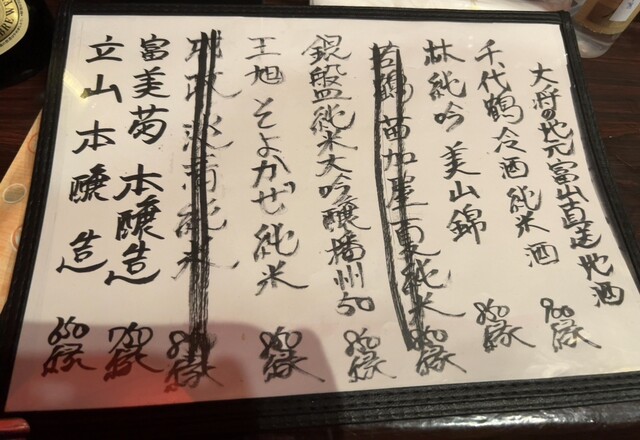 大将の地元富山直送地酒
千代鶴 冷酒 純米酒 900縁
林 純吟 美山錦 850縁
若鶴 苗加屋 純米
銀盤 純米大吟醸 播州50 850縁
玉旭 そよかぜ 純米 800縁
成政 純米
富美菊 本醸造 700縁
立山 本醸造 650縁